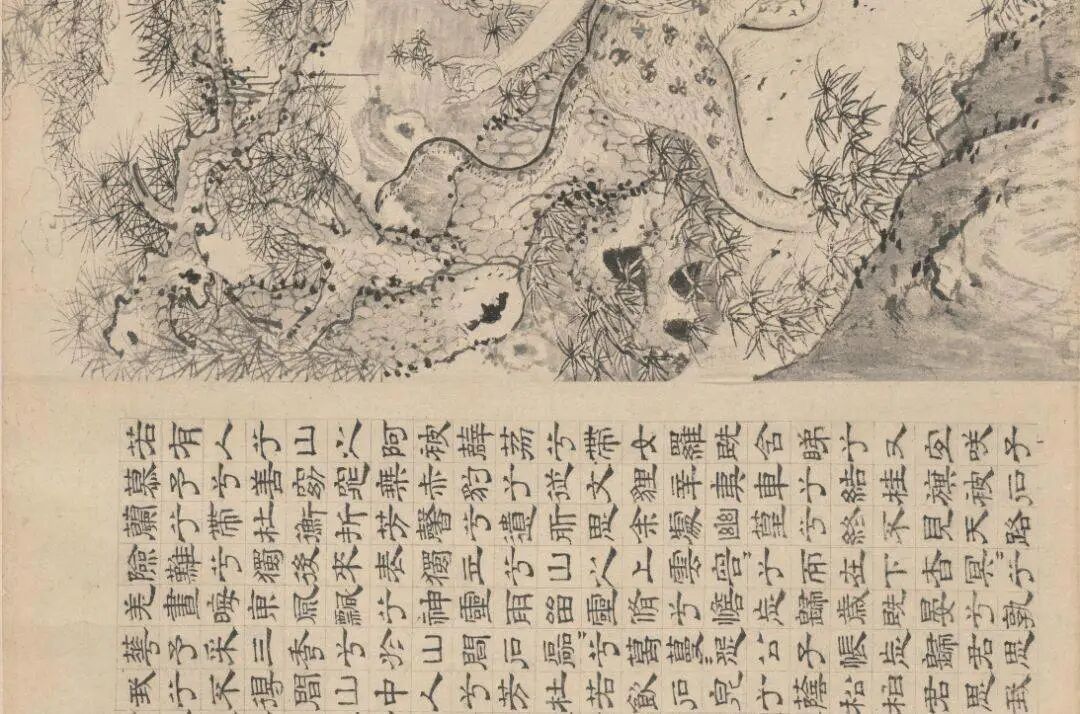 若有人兮山之阿被薜荔兮帶女羅既含睇兮又宜咲子
慕予兮善窈窕椉赤豹兮從文貍辛夷車兮結桂旗被石
蘭兮帶杜衡折芳馨兮遺所思余處幽篁兮終不見天路
險難兮獨後來表獨立兮山之上雲容〻兮而在下杳冥〻兮
羌晝晦東風飄兮神靈雨留靈脩兮憺忘歸歲既晏兮孰
華予采三秀兮於山間石磊〻兮葛蔓〻怨公子悵忘歸君思
我兮不得間山中人兮芳杜若飲石泉兮蔭松柏君思我